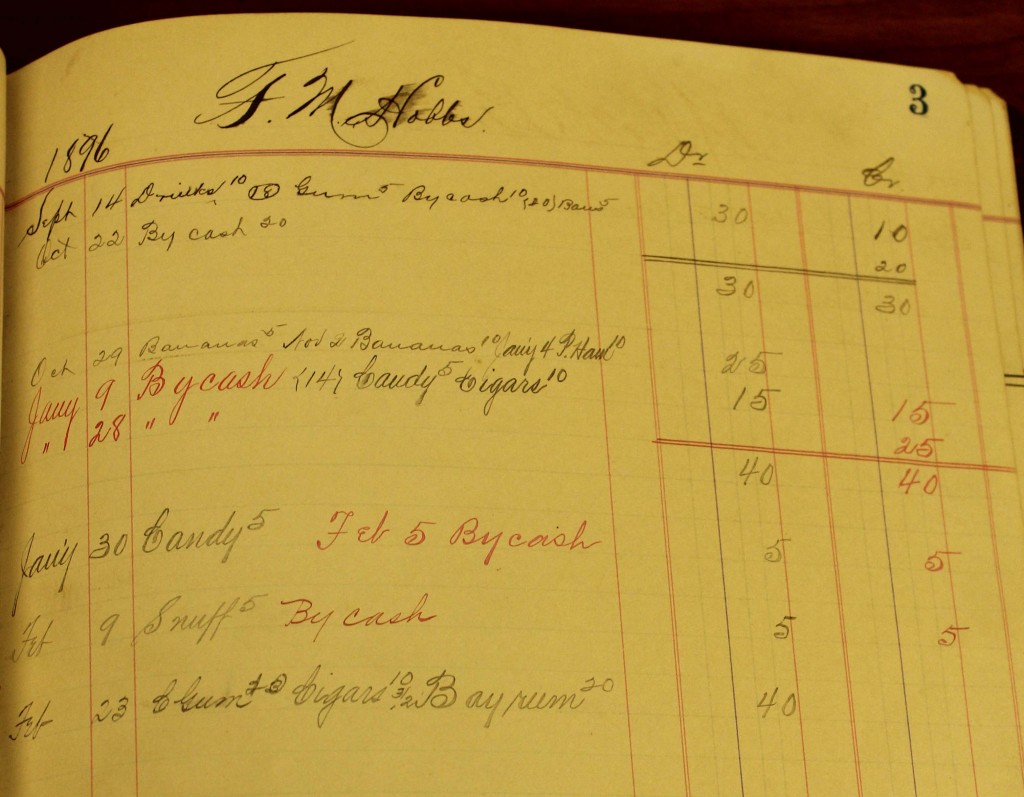 F. M. Hobbs 3
1896 Dr Cr
Sept 14 Drinks 10 (18) Gum 5 By cash 10 (20) 5 30 10
Oct 22 By cash 20 20
30 30
Oct 29 Bananas 5 Nov 2 Bananas 10 Jany 4 P. 10 25
Jany 9 By cash (14) Candy 5 Cigars 10 15 15
" 28 " " 25
40 40
Jany 30 Candy 5 Feb 5 By cash 5 5
Feb 9 Snuff 5 By cash 5 5
Feb 23 Gum Cigars 10 3/2 Bay rum 20 40